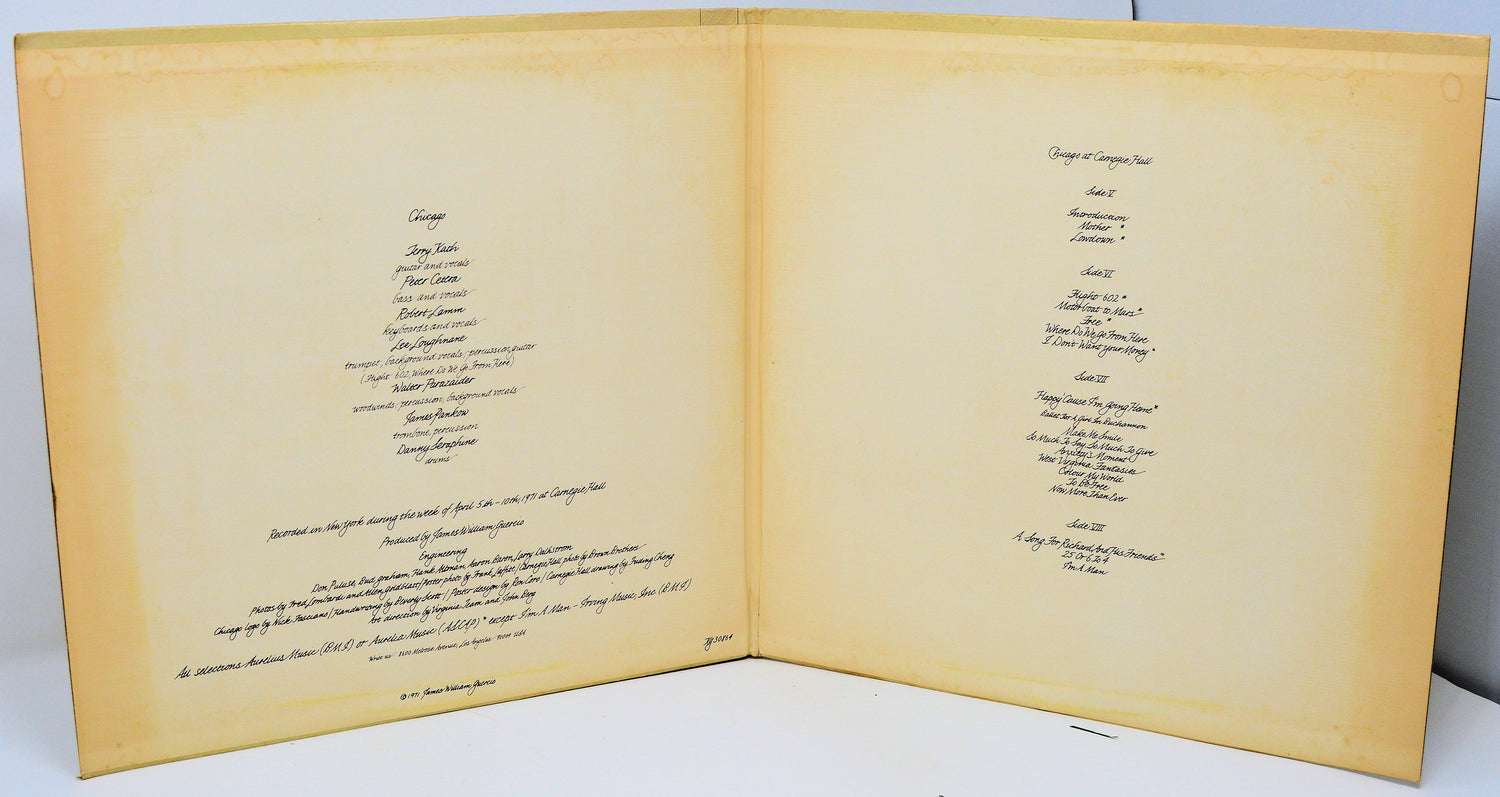 Chicago
Terry Kath
guitar and vocals
Peter Cetera
bass and vocals
Robert Lamm
keyboards and vocals
Lee Loughnane
trumpet, background vocals, percussion, guitar
(Flight 602, Where Do We Go From Here)
Walter Parazaider
woodwinds, percussion, background vocals
James Pankow
trombone, percussion
Danny Seraphine
drums
Recorded in New York during the week of April 5th-10th, 1971 at Carnegie Hall
Produced by James William Guercio
Engineering
Don Puluse, Bud Graham, Hank Altman, Aaron Baron, Larry Dahlstrom
Photos by Fred Lombardi and Allen Goldblatt / Poster photo by Frank Laffitte / Carnegie Hall photo by Brown Brothers
Chicago logo by Nick Fasciano / Handwriting by Beverly Scott / Poster design by Ron Coro / Carnegie Hall drawing by Fuding Cheng
Art direction by Virginia Team and John Berg
All selections Aurelius Music (B.M.I) or Aurelia Music (ASCAP) * except I'm A Man - Irving Music, Inc. (B.M.I)
Write us 8600 Melrose Avenue, Los Angeles 90069 USA
© 1971 James William Guercio
Chicago at Carnegie Hall
Side V
Introduction
Mother *
Lowdown *
Side VI
Flight 602 *
Motorboat to Mars *
Free *
Where Do We Go From Here
I Don't Want Your Money *
Side VII
Happy 'Cause I'm Going Home *
Ballet For A Girl In Buchannon
Make Me Smile
So Much To Say, So Much To Give
Anxiety's Moment
West Virginia Fantasies
Colour My World
To Be Free
Now More Than Ever
Side VIII
A Song For Richard And His Friends *
25 Or 6 To 4
I'm A Man